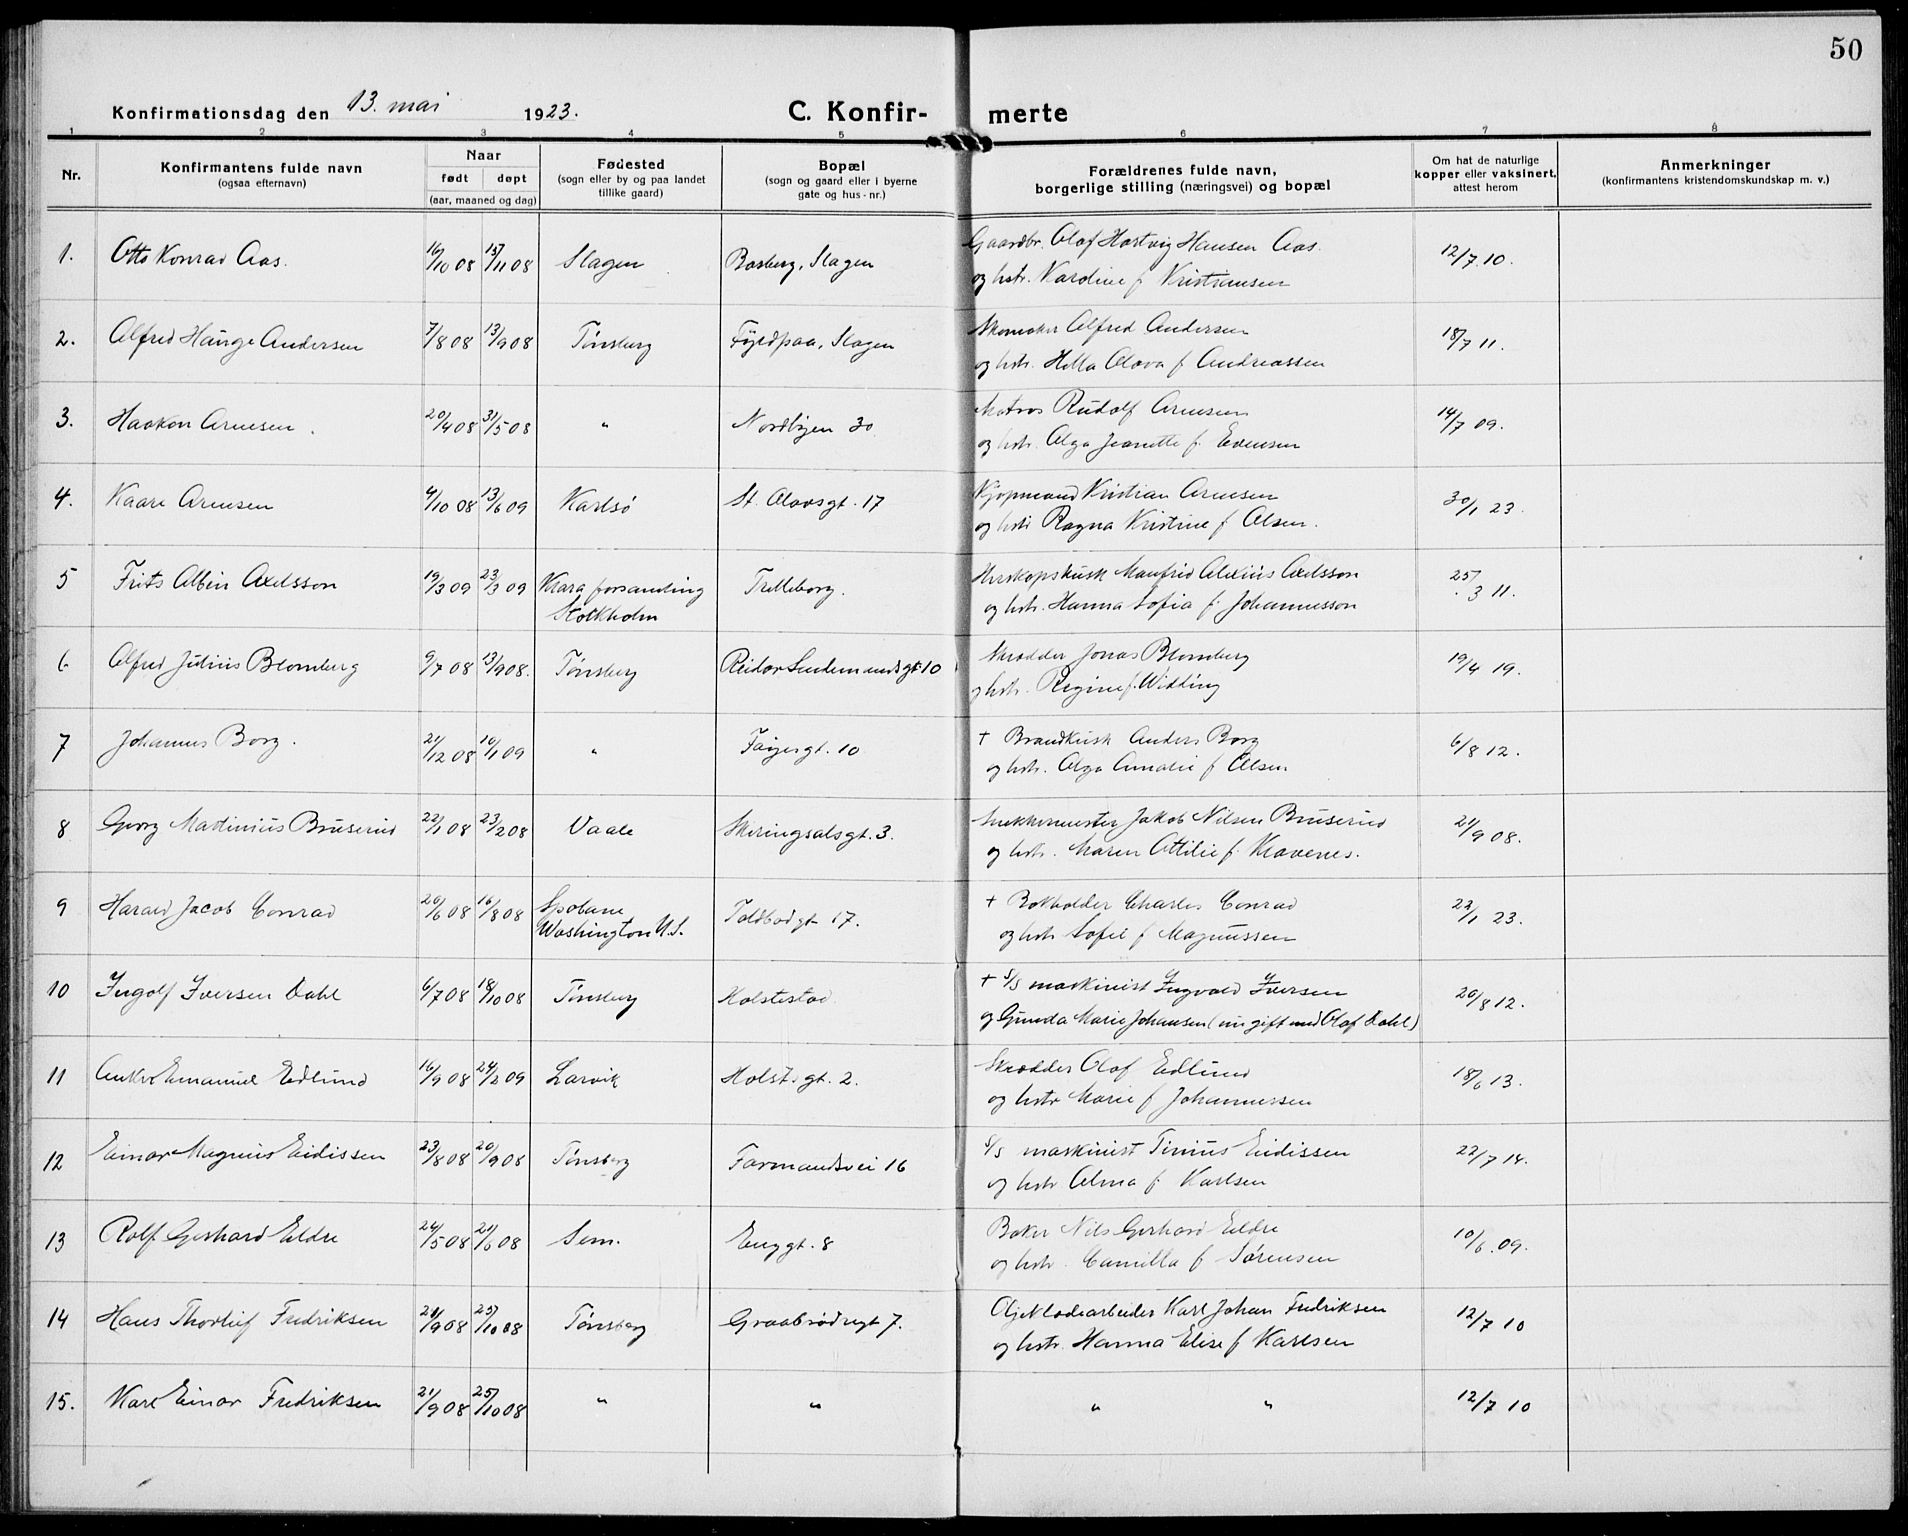 50
Konfirmationsdag den 13. mai 1923.
C. Konfir-merte
1 2 3 4 5 6 7 8
Nr.
Konfirmantens fulde navn
(ogsaa efternavn)
Naar
født døpt
(aar, maaned og dag)
Fødested
(sogn eller by og paa landet
tillike gaard)
Bopæl
(sogn og gaard eller i byerne
gate og hus-nr.)
Forældrenes fulde navn,
borgerlige stilling (næringsvei) og bopæl
Om hat de naturlige
kopper eller vaksinert,
attest herom
Anmerkninger
(konfirmantens kristendomskundskap m. v.)
1. Otto Konrad Aas. 16/10 08 15/11 08 Slagen Basberg, Slagen Gaardbr. Olaf Hartvig Hansen Aas. 12/7. 10.
og hstr. Nardine f Kristiansen
2. Alfred Hauge Andersen 7/8 08 13/9 08 Tønsberg Slagen Skomaker Alfred Andersen 18/7 11.
og hstr. Hella Olava f Andreassen
3. Haakon Arnesen 20/4 08 31/5 08 " Nordbyen 30 Matros Rudolf Arnesen 14/7 09.
og hstr. Olga Jeanette f. Evensen
4. Kaare Arnesen 4/10 08 13/6 09 Karlsö St. Olavsgt. 17 Kjøpmand Kristian Arnesen 30/1 23.
og hstr Ragna Kristine f Olsen.
5 Frits Albin Axelsson 19/3 09 23/3 09 Klara forsamling Trelleborg. Herskapskusk Manfrid Alexius Axelsson 25/3 11.
Stokholm og hstr. Hanna Sofia f. Johannesson
6 Alfred Julius Blomberg 9/7 08 13/9 08. Tønsberg Reidar Sendemandsgt. 10 Skrædder Jonas Blomberg 19/4 19.
og hstr. Regine f. Widding
7 Johannes Borg. 21/12 08 10/1 09 " Fayesgt. 10 + Brandkusk Anders Borg 6/8 12.
og hstr. Olga Amalie f Olsen
8 Georg Martinius Bruserud 22/1 08 23/2 08 Vaale Skiringsalsgt. 3. Snekkermester Jakob Nilsen Bruserud 21/9 08.
og hstr. Maren Ottilie f. Klavenes.
9 Harald Jacob Conrad 20/6 08 16/8 08 Spokane Toldbodgt 17. + Bokholder Charles Conrad 22/1 23.
Washington U.S. og hstr Sofie f Magnussen
10 Ingolf Iversen Dahl 6/7 08 18/10 08 Tønsberg Holstestad + S/S maskinist Ingvald Iversen 20/8 12.
og Gunda Marie Johansen (nu gift med Olaf Dahl)
11 Anker Emanuel Edlund 16/9 08 24/2 09 Larvik Holstsgt. 2. Skrædder Olaf Edlund 18/6 13.
og hstr Marie f Johannessen
12 Einar Magnus Eidissen 23/8 08 20/9 08 Tønsberg Farmandsvei 16 S/S maskinist Tinius Eidissen 22/7 14.
og hstr Alma f. Karlsen
13 Rolf Gerhard Eldre 24/5 08 21/6 08 Sem. Enggt. 8 Baker Nils Gerhard Eldre 10/6. 09.
og hstr. Camilla f Sørensen
14 Hans Thorleif Fredriksen 21/9 08 25/10 08 Tønsberg Graabrødregt 7. Oljeklædearbeider Karl Johan Fredriksen 12/7 10
og hstr. Hanna Elise f Karlsen
15. Karl Einar Fredriksen 21/9 08 25/10 08 " " " " 12/7 10